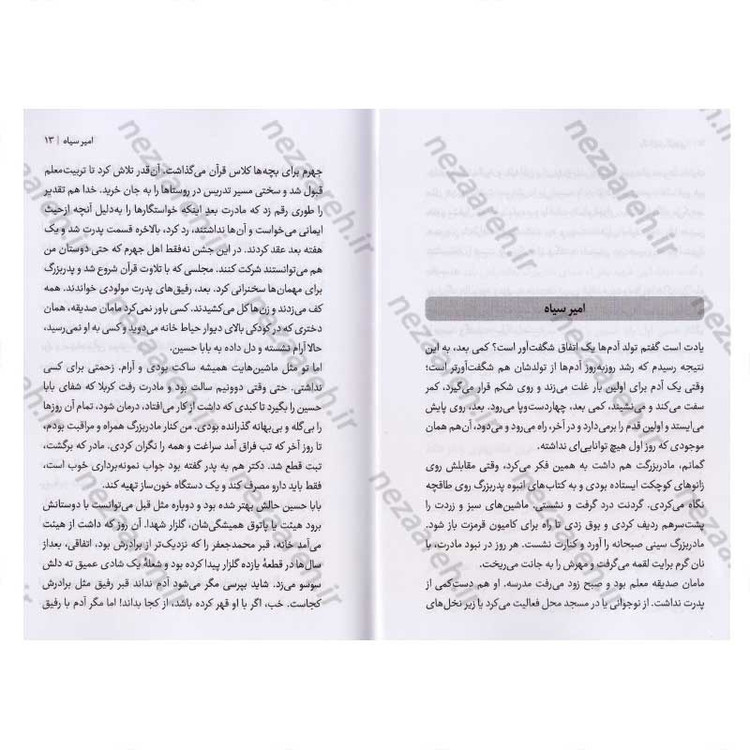 امیر سیاه
یادت است گفتم تولد آدم‌ها یک اتفاق شگفت‌آور است؟ کمی بعد، به این
نتیجه رسیدم که رشد روزبه‌روز آدم‌ها از تولدشان هم شگفت‌آورتر است!
وقتی یک آدم برای اولین بار غلت می‌زند و روی شکم قرار می‌گیرد، کمر
سفت می‌کند و می‌نشیند، کمی بعد، چهاردست‌وپا می‌رود. بعد، روی پایش
می‌ایستد و اولین قدم را برمی‌دارد و در آخر، راه می‌رود و می‌دود، آن‌هم همان
موجودی که روز اول هیچ توانایی‌ای نداشته.
گمانم، مادربزرگت هم داشت به همین فکر می‌کرد، وقتی مقابلش روی
زانوهای کوچکت ایستاده بودی و به کتاب‌های انبوه پدربزرگ روی طاقچه
نگاه می‌کردی. گردنت درد گرفت و نشستی. ماشین‌های سبز و زردت را
پشت‌سرهم ردیف کردی و بوق زدی تا راه برای کامیون قرمزت باز شود.
مادربزرگ سینی صبحانه را آورد و کنارت نشست. هر روز در نبود مادرت، با
نان گرم برایت لقمه می‌گرفت و مهرش را به جانت می‌ریخت.
مامان صدیقه معلم بود و صبح زود می‌رفت مدرسه. او هم دست‌کمی از
پدرت نداشت. از نوجوانی یا در مسجد محل فعالیت می‌کرد یا زیر نخل‌های
امیر سیاه | ۱۳
جهرم برای بچه‌ها کلاس قرآن می‌گذاشت. آن‌قدر تلاش کرد تا تربیت‌معلم
قبول شد و سختی مسیر تدریس در روستاها را به جان خرید. خدا هم تقدیر
را طوری رقم زد که مادرت بعد اینکه خواستگارها را به‌دلیل آنچه ازحیث
ایمانی می‌خواست و آن‌ها نداشتند، رد کرد، بالاخره قسمت پدرت شد و یک
هفته بعد عقد کردند. در این جشن نه‌فقط اهل جهرم که حتی دوستان من
هم می‌توانستند شرکت کنند. مجلسی که با تلاوت قرآن شروع شد و پدربزرگ
برای مهمان‌ها سخنرانی کرد. بعد، رفیق‌های پدرت مولودی خواندند. همه
کف می‌زدند و زن‌ها کل می‌کشیدند. کسی باور نمی‌کرد مامان صدیقه، همان
دختری که در کودکی بالای دیوار حیاط خانه می‌دوید و کسی به او نمی‌رسید،
حالا آرام نشسته و دل داده به بابا حسین.
اما تو مثل ماشین‌هایت همیشه ساکت بودی و آرام. زحمتی برای کسی
نداشتی. حتی وقتی دوونیم سالت بود و مادرت رفت کربلا که شفای بابا
حسین را بگیرد تا کبدی که داشت از کار می‌افتاد، درمان شود، تمام آن روزها
را بی‌گله و بی‌بهانه گذرانده بودی. من کنار مادربزرگ همراه و مراقبت بودم،
تا روز آخر که تب فراق آمد سراغت و همه را نگران کردی. مادر که برگشت،
تبت قطع شد. دکتر هم به پدر گفته بود جواب نمونه‌برداری خوب است،
فقط باید دارو مصرف کند و یک دستگاه خون‌ساز تهیه کند.
بابا حسین حالش بهتر شده بود و دوباره مثل قبل می‌توانست با دوستانش
برود هیئت یا پاتوق همیشگی‌شان، گلزار شهدا. آن روز که داشت از هیئت
می‌آمد خانه، قبر محمدجعفر را که نزدیک‌تر از برادرش بود، اتفاقی، بعداز
سال‌ها در قطعهٔ یازده گلزار پیدا کرده بود و شعلهٔ یک شادی عمیق ته دلش
سوسو می‌زد. شاید بپرسی مگر می‌شود آدم نداند قبر رفیق مثل برادرش
کجاست. خب، اگر با او قهر کرده باشد، از کجا بداند! اما مگر آدم با رفیق
nezaareh.ir